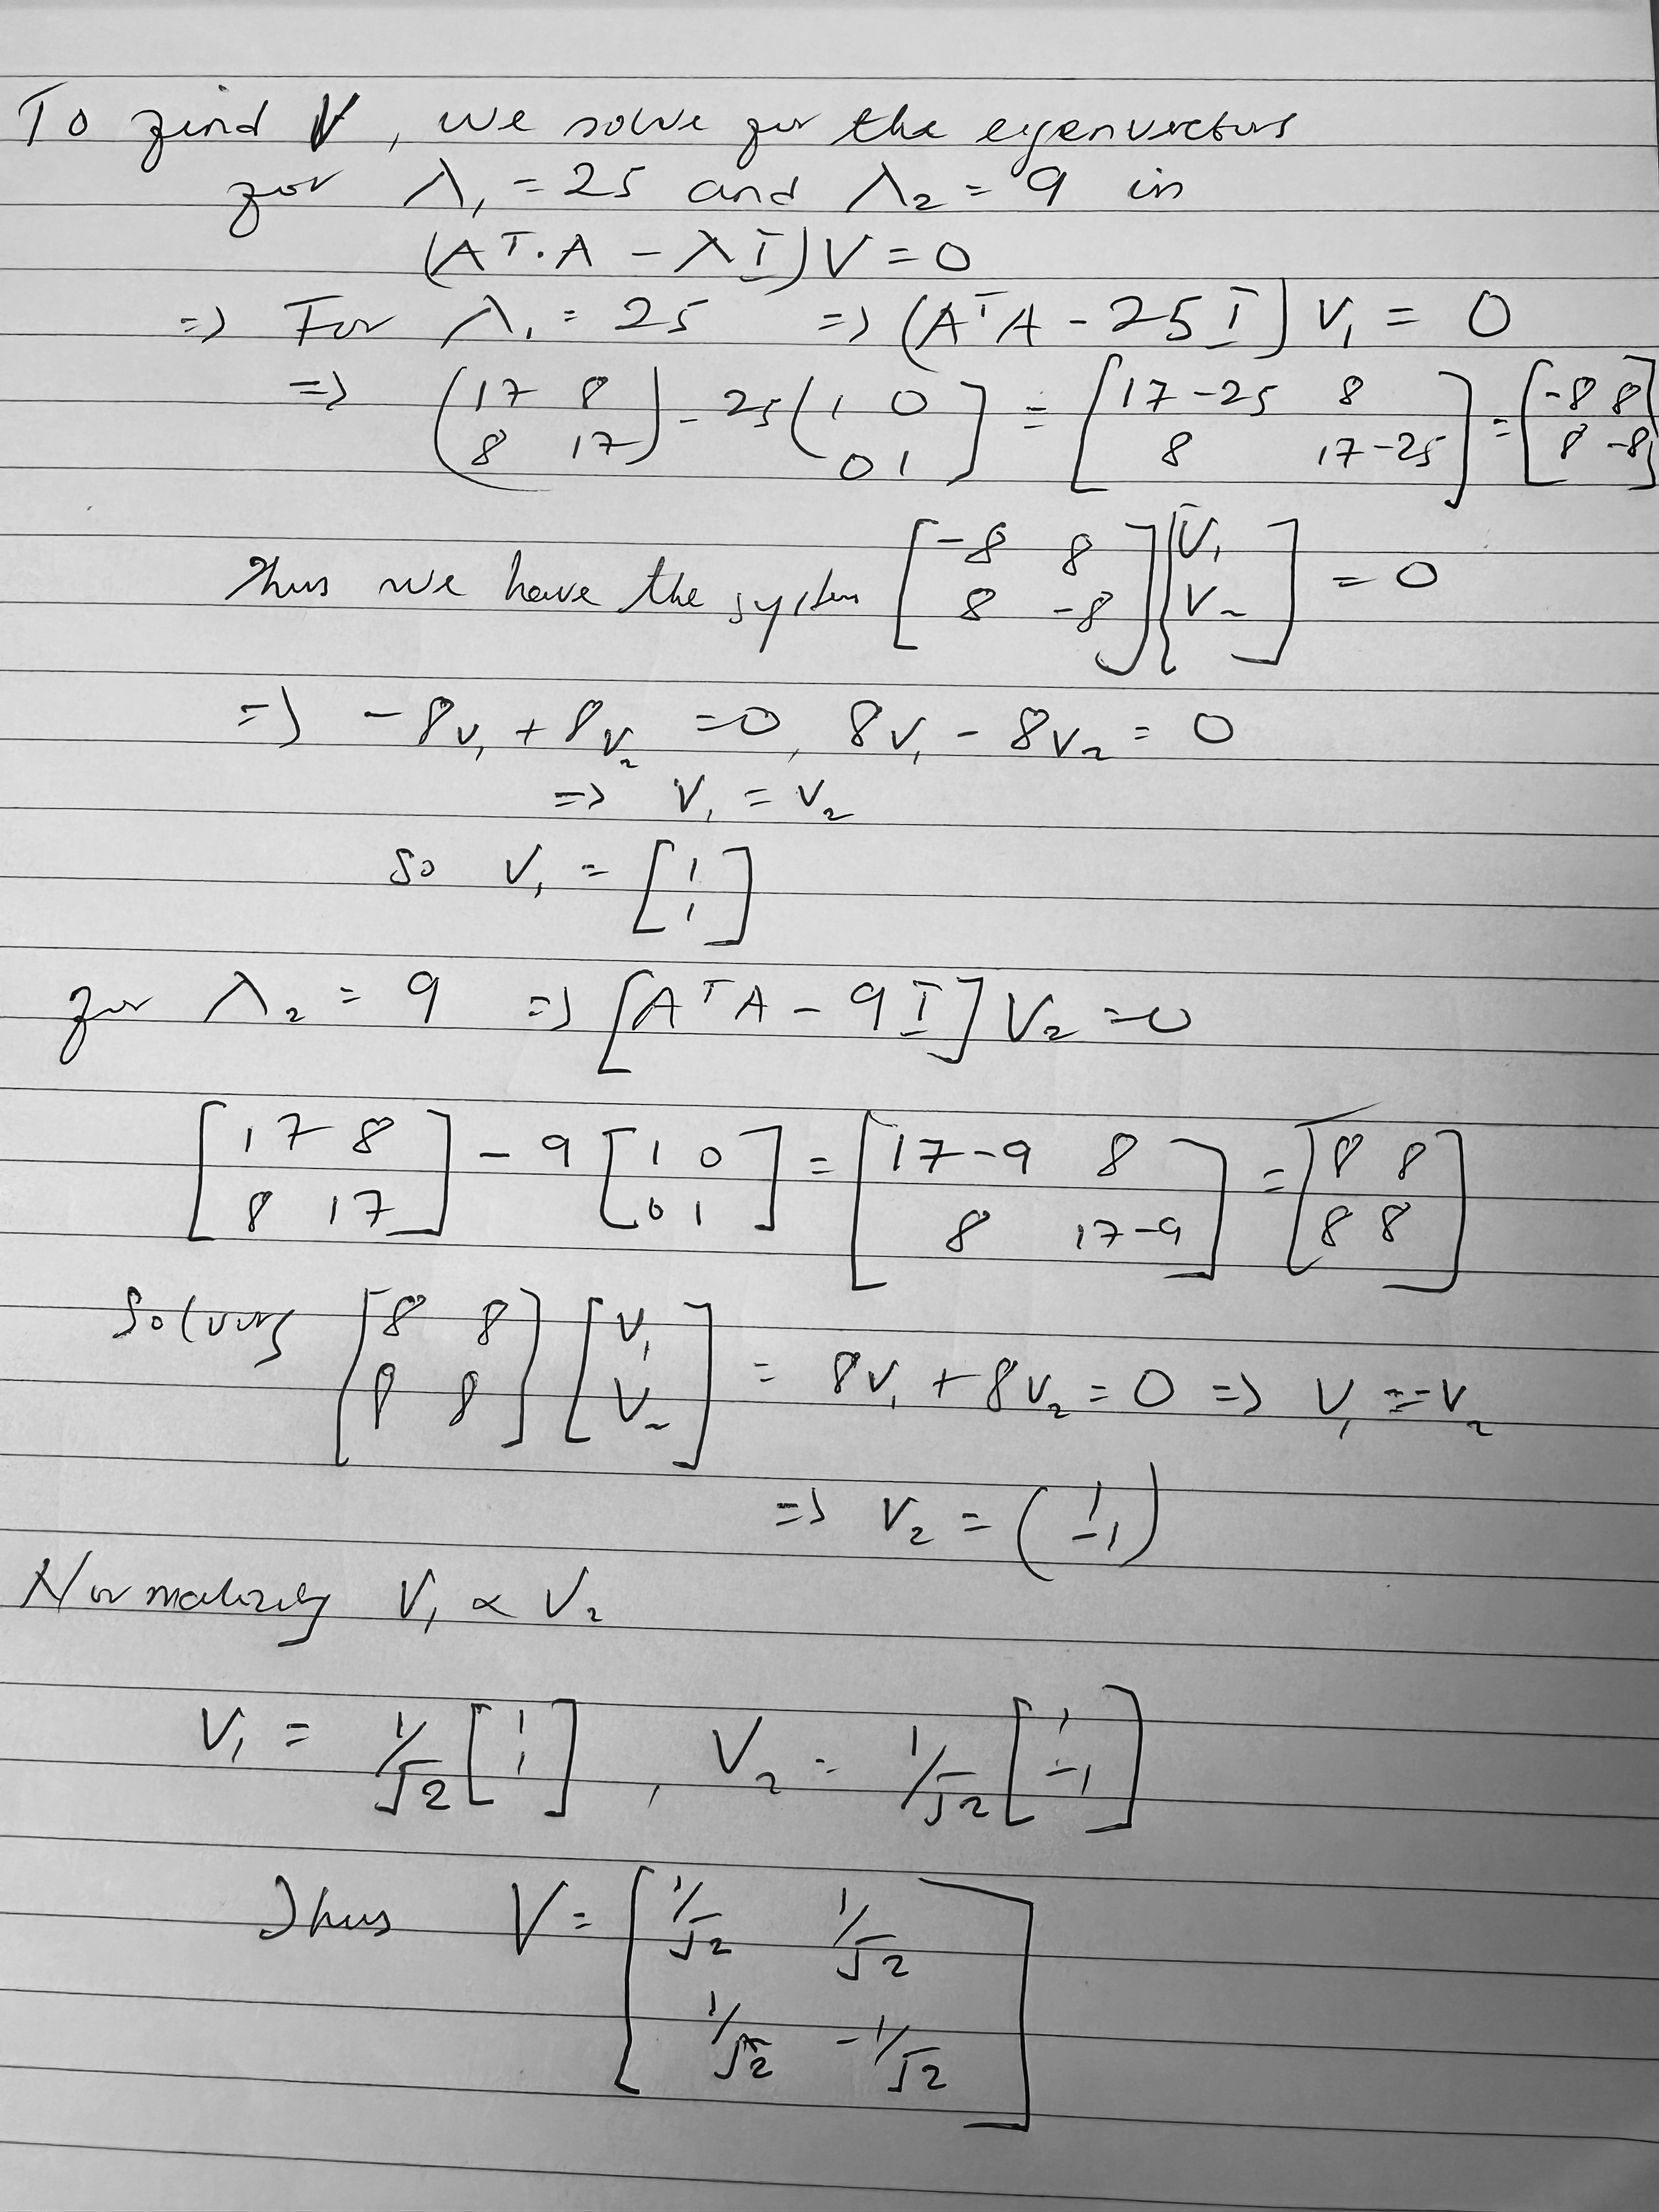 To find V, we solve for the eigenvectors
for λ₁ = 25 and λ₂ = 9 in
(Aᵀ·A - λI)V = 0
=> For λ₁ = 25 => (AᵀA - 25I)V₁ = 0
=> (17 8; 8 17) - 25(1 0; 0 1] = [17-25 8; 8 17-25] = [-8 8; 8 -8]
Thus we have the system [-8 8; 8 -8][V₁; V₂] = 0
=> -8v₁ + 8v₂ = 0, 8v₁ - 8v₂ = 0
=> V₁ = V₂
So V₁ = [1; 1]
for λ₂ = 9 => [AᵀA - 9I]V₂ = 0
[17 8; 8 17] - 9[1 0; 0 1] = [17-9 8; 8 17-9] = [8 8; 8 8]
Solving [8 8; 8 8][V₁; V₂] = 8v₁ + 8v₂ = 0 => V₁ = -V₂
=> V₂ = (1; -1)
Normalizing V₁ & V₂
V₁ = 1/√2 [1; 1], V₂ = 1/√2 [1; -1]
Thus V = [1/√2 1/√2; 1/√2 -1/√2]